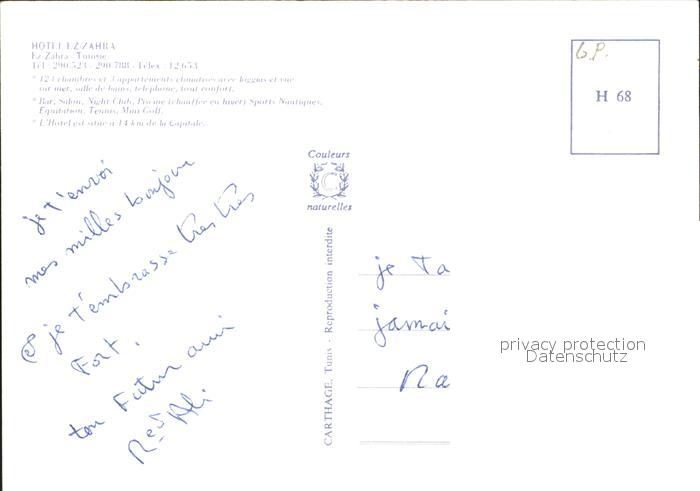 HOTEL EZ-ZAHRA
Ez-Zahra - Tunisie
Tél : 290.523 - 290.788 - Telex : 12.653
* 123 chambres et 3 appartements climatisés avec loggias et vue
sur mer, salle de bains, téléphone, tout confort.
* Bar, Salon, Night Club, Piscine (chauffée en hiver) Sports Nautiques,
Equitation, Tennis, Mini Golf.
* L'Hotel est situé à 14 km de la Capitale.
G.P.
H 68
Couleurs
C
naturelles
CARTHAGE, Tunis - Reproduction interdite
je t'envoi
mes milles bonjour
et je t'embrasse très très
Fort.
ton Futur ami
Ali
je ta
jamai
Ra
privacy protection
Datenschutz